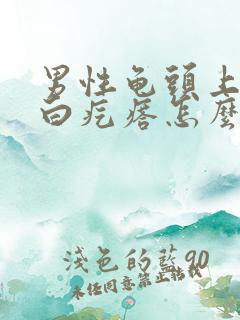 男性龟頭上
白疙瘩怎麼
淺色的藍90
未经同意禁止转载